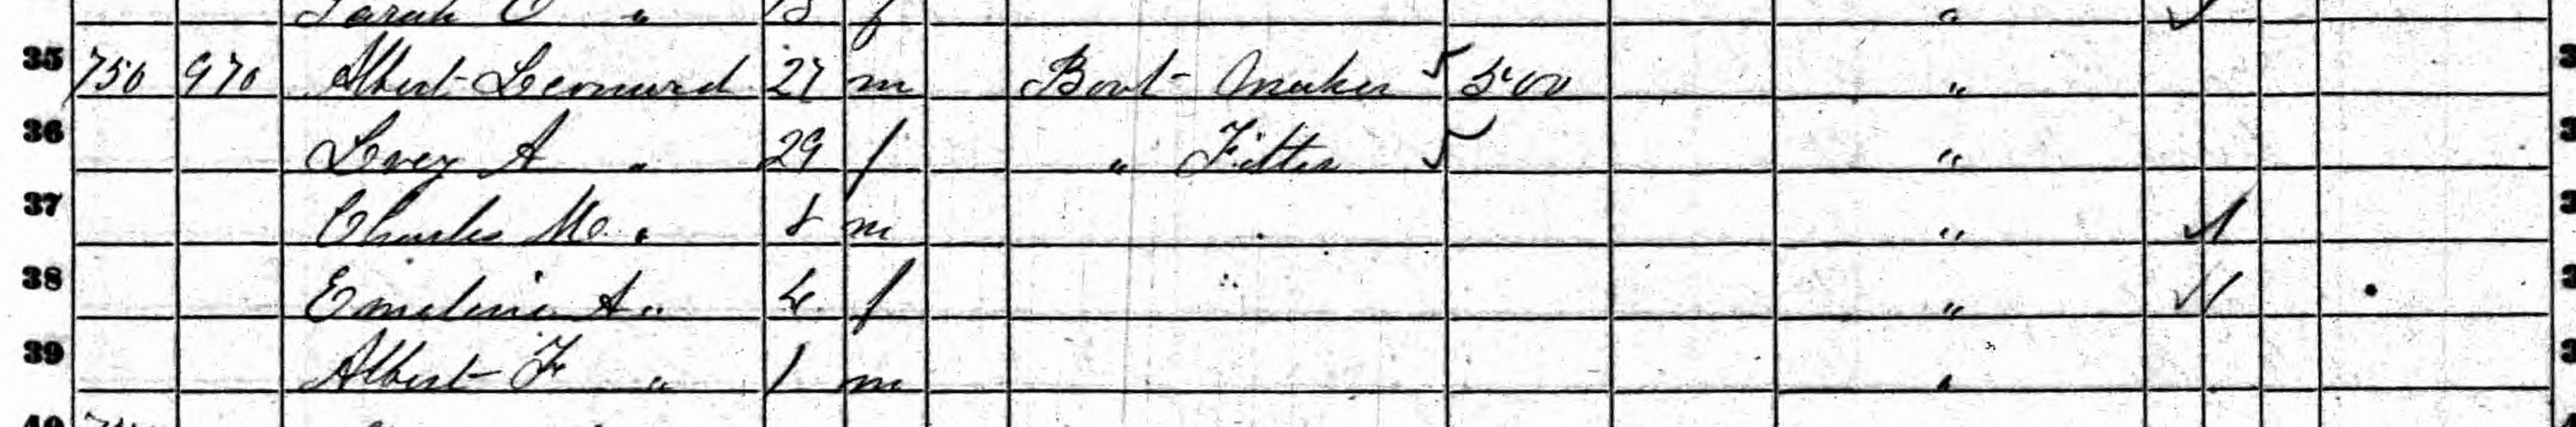 Sarah O "
35 750 970 Albert Leonard 27 m Boot Maker 500 "
36 Lucy A " 29 f " Fitter "
37 Charles M. " 8 m "
38 Emeline A " 4 f "
39 Albert F " 1 m "
40